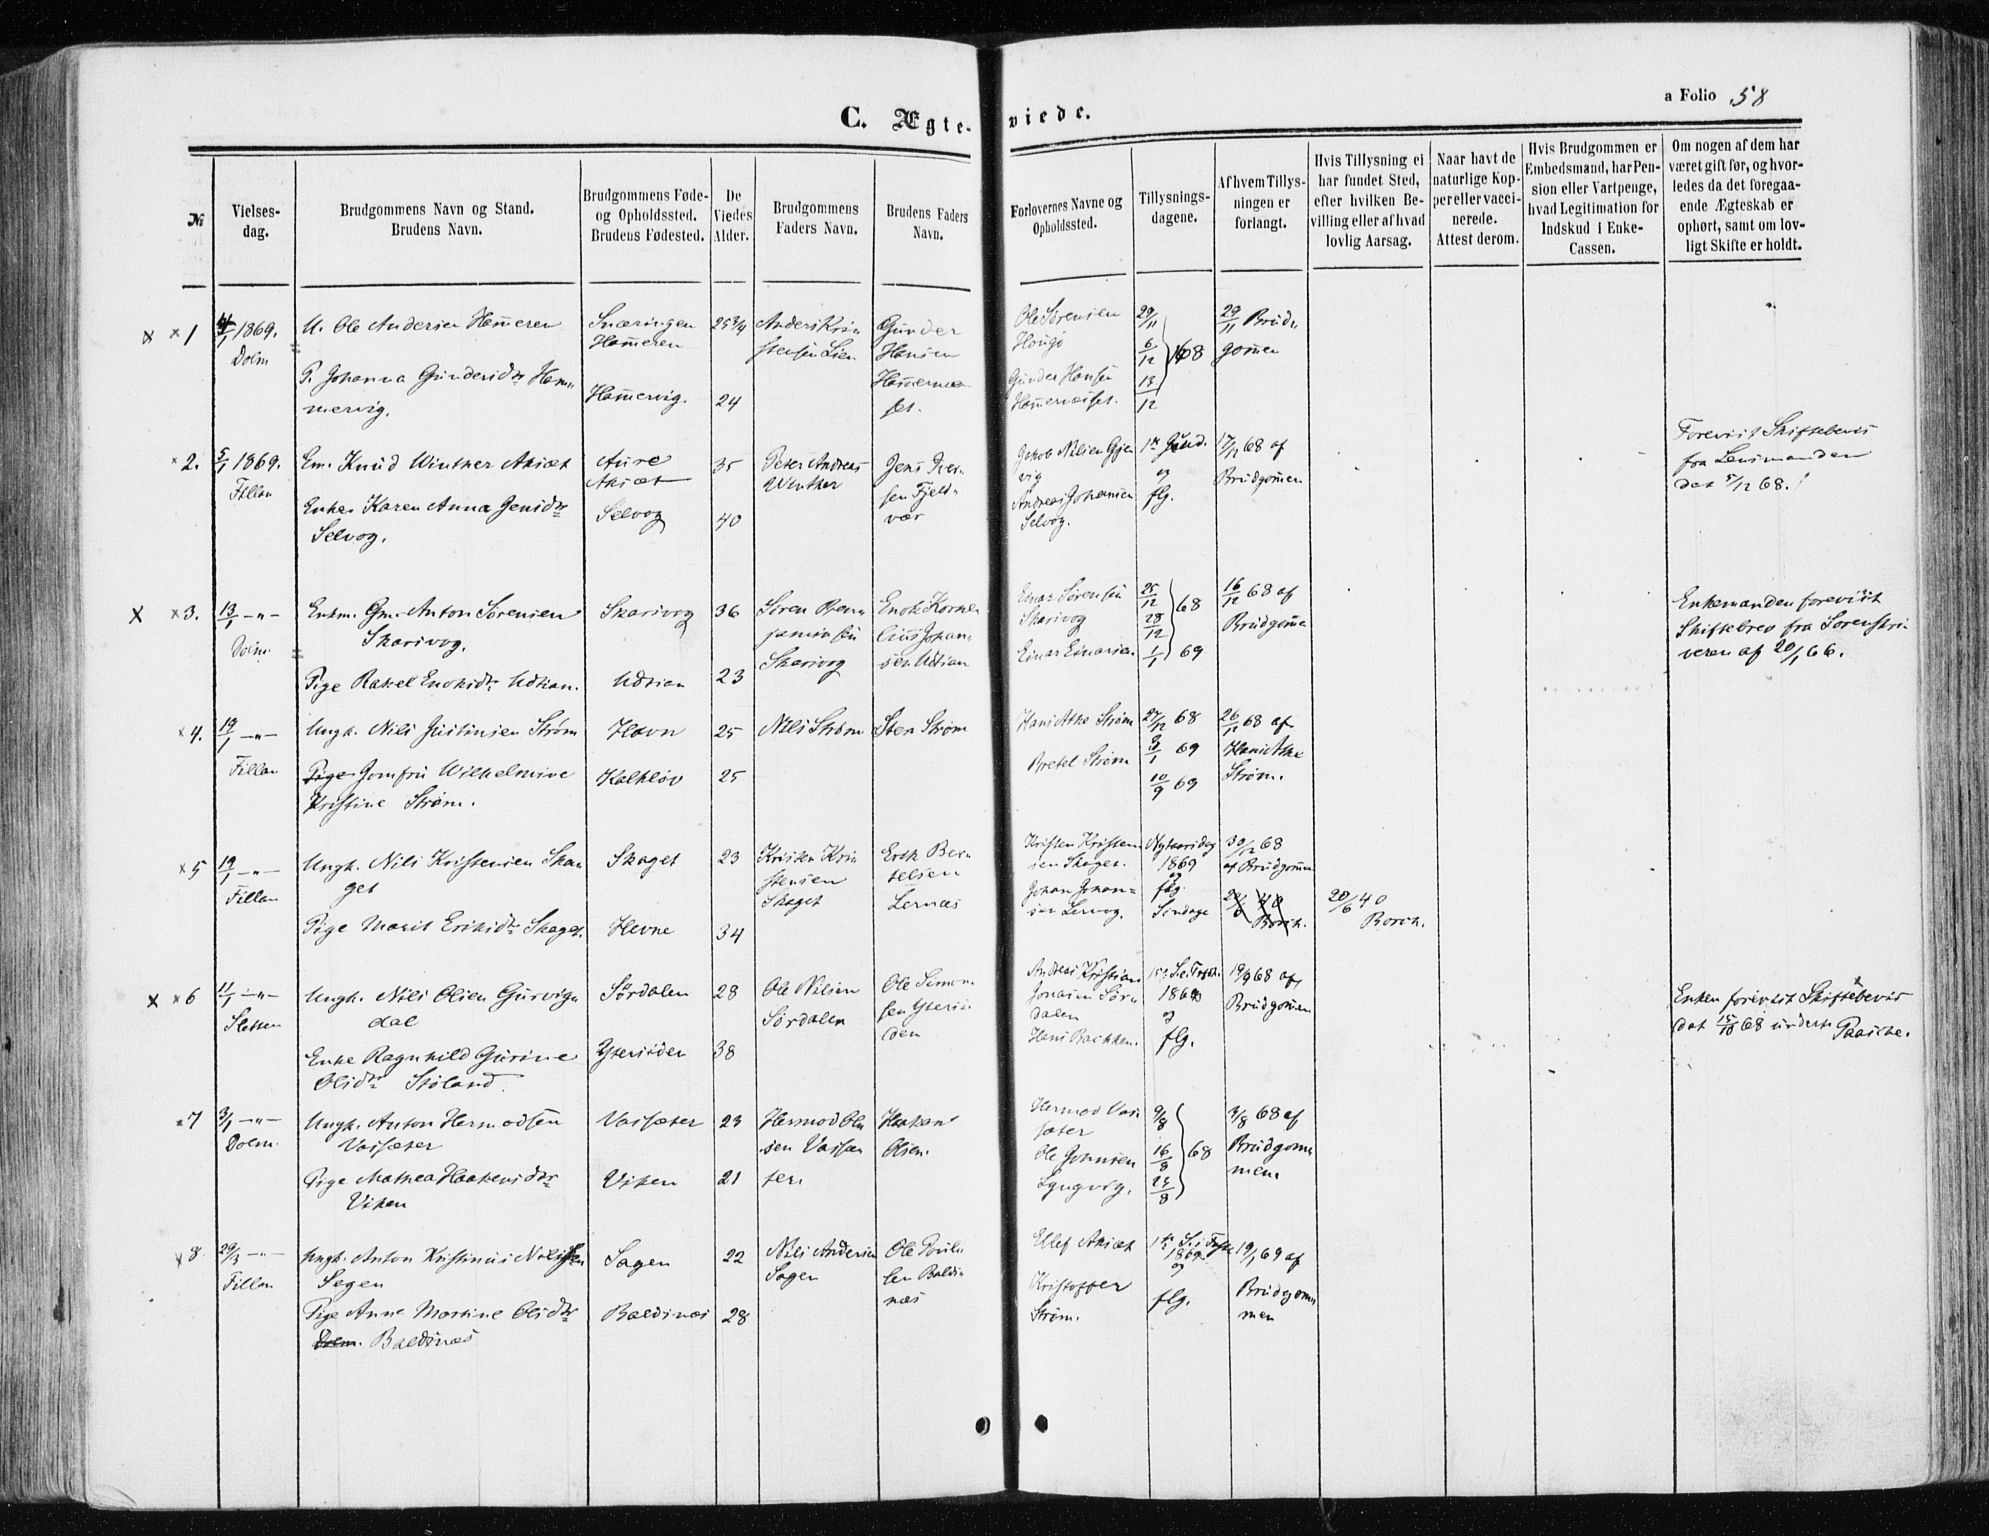 a Folio 58
C. Ægte-viede.
№
Vielses-
dag.
Brudgommens Navn og Stand.
Brudens Navn.
Brudgommens Føde-
og Opholdssted.
Brudens Fødested.
De
Viedes
Alder.
Brudgommens
Faders Navn.
Brudens Faders
Navn.
Forlovernes Navne og
Opholdssted.
Tillysnings-
dagene.
Af hvem Tillys-
ningen er
forlangt.
Hvis Tillysning ei
har fundet Sted,
efter hvilken Be-
villing eller af hvad
lovlig Aarsag.
Naar havt de
naturlige Kop-
per eller vacci-
nerede.
Attest derom.
Hvis Brudgommen er
Embedsmand, har Pen-
sion eller Vartpenge,
hvad Legitimation for
Indskud i Enke-
Cassen.
Om nogen af dem har
været gift før, og hvor-
ledes da det foregaa-
ende Ægteskab er
ophørt, samt om lov-
ligt Skifte er holdt.
x x 1
4/1 1869.
Dolm
U. Ole Andersen Ham̄eren
P. Johanna Gundersdtr Ham-
mervig.
Snæringen
Ham̄eren
Ham̄ervig.
25 3/4
24
Anders Kri-
stensen Lien
Gunder
Hansen
Ole Sørensen
Gunder Hansen
29/11
6/12
13/12
68
29/11 Brud-
gom̄en
x 2.
5/1 1869.
Fillan
Em. Knud Winther Akset
Enke Karen Anna Jensdtr
Selvog.
Aure
Akset
Selvog
35
40
Peter Andreas
Winther
Jens Iver-
sen Fjeld-
vær
Jakob Nilsen Gjen-
vig
Andreas Johansen
Selvog.
og
flg.
17/12 68 af
Brudgom̄en
Forevist Skiftebevis
fra Lensmanden
dat 5/12 68.
x x 3.
13/1 -"-
Dolm.
Enkm. Gm. Anton Sørensen
Skarsvog.
Pige Rakel Enoksdtr Udtian.
Skarsvog
Udtian
36
23
Søren Ben-
jaminsen
Skarsvog
Enok Korne-
lius Johan-
sen Udtian
Einar Sørensen
Skarsvog
Einar Einarsen
25/12
28/12
68
1/1 69
16/12 68 af
Brudgom̄e
Enkemanden forevist
Skiftebrev fra Sorenskri-
veren af 20/1 66.
x 4.
19/1 -"-
Fillan
Ungk. Nils Justinsen Strøm
Pige Jomfru Wilhelmine
Kristine Strøm.
Havn
Kalkløv
25
25
Nils Strøm
Sten Strøm
Hans Atke Strøm
Bretel Strøm
27/12 68
3/1 69
10/9 69
26/12 68 af
Hans Atke
Strøm.
x 5
19/1 -"-
Fillan
Ungk. Nils Kristensen Ska-
get
Pige Marit Eriksdtr Skaget.
Skaget
Hevne
23
34
Kristen Kri-
stensen
Skaget
Erik Ber-
telsen
Lernæs
Kristen Kristen-
sen Skaget.
Johan Johan-
sen Lervog.
Nytaarsdag
1869
og
flg.
Søndage
30/12 68
af Brudgom̄en
20/6 40
Borch.
20/6 40
Borch.
x x 6
11/1 -"-
Sletten
Ungk. Nils Olsen Gurvig-
dal
Enke Ragnhild Gurine
Olsdtr Støland.
Sørdalen
Ytersiden
28
38
Ole Nilsen
Sørdalen
Ole Simon-
sen Ytersi-
den
Andreas Kristian
Jonasen Sør-
dalen
Hans Backken.
1868
og
flg.
19/9 68 af
Brudgom̄en
Enken forevist Skiftebevis
dat 15/10 68 underst. Paasche.
x 7
3/1 -"-
Dolm.
Ungk. Anton Hermodsen
Vassæter
Pige Mathea Haakensdtr
Viken
Vassæter
Viken
23
21
Hermod Ol-
sen Vassæ-
ter.
Haaken
Olsen.
Hermod Vas-
sæter
Ole Johnsen
Lyngvig.
9/8
16/8
23/8
68
3/8 68 af
Brudgom-
men.
x 8
29/3 -"-
Fillan
Ungk. Anton Kristinus Nilssen
Sagen
Pige Anne Martine Olsdtr
Dolm. Baldsnæs
Sagen
Baldsnæs
22
28
Nils Andersen
Sagen
Ole Pouls-
sen Balds-
næs
Ellef Akset
Kristoffer
Strøm.
1ste S. i Faste
1869
og
flg.
19/1 69 af
Brudgom-
men